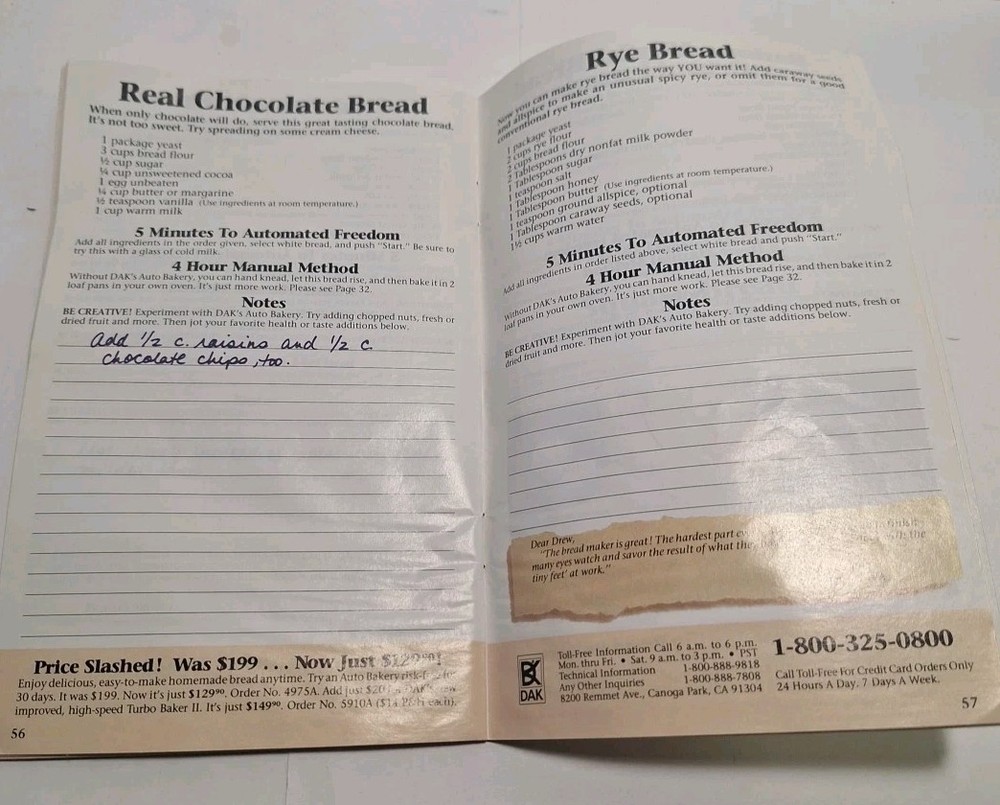 Real Chocolate Bread
When only chocolate will do, serve this great tasting chocolate bread.
It's not too sweet. Try spreading on some cream cheese.
1 package yeast
3 cups bread flour
½ cup sugar
¼ cup unsweetened cocoa
1 egg unbeaten
¼ cup butter or margarine
½ teaspoon vanilla (Use ingredients at room temperature.)
1 cup warm milk
5 Minutes To Automated Freedom
Add all ingredients in the order given, select white bread, and push "Start." Be sure to
try this with a glass of cold milk.
4 Hour Manual Method
Without DAK's Auto Bakery, you can hand knead, let this bread rise, and then bake it in 2
loaf pans in your own oven. It's just more work. Please see Page 32.
Notes
BE CREATIVE! Experiment with DAK's Auto Bakery. Try adding chopped nuts, fresh or
dried fruit and more. Then jot your favorite health or taste additions below.
Add ½ c. raisins and ½ c.
chocolate chips, too.
Price Slashed! Was $199 . . . Now Just $129⁹⁰!
Enjoy delicious, easy-to-make homemade bread anytime. Try an Auto Bakery risk-free for
30 days. It was $199. Now it's just $129⁹⁰. Order No. 4975A. Add just $20 DAK's new
improved, high-speed Turbo Baker II. It's just $149⁹⁰. Order No. 5910A ($14 P&H each).
56
Rye Bread
Now you can make rye bread the way YOU want it! Add caraway seeds
and allspice to make an unusual spicy rye, or omit them for a good
conventional rye bread.
1 package yeast
2 cups rye flour
2 cups bread flour
2 Tablespoons dry nonfat milk powder
1 Tablespoon sugar
1 teaspoon salt
1 Tablespoon honey
1 Tablespoon butter (Use ingredients at room temperature.)
1 teaspoon ground allspice, optional
1 Tablespoon caraway seeds, optional
1½ cups warm water
5 Minutes To Automated Freedom
Add all ingredients in order listed above, select white bread and push "Start."
4 Hour Manual Method
Without DAK's Auto Bakery, you can hand knead, let this bread rise, and then bake it in 2
loaf pans in your own oven. It's just more work. Please see Page 32.
Notes
BE CREATIVE! Experiment with DAK's Auto Bakery. Try adding chopped nuts, fresh or
dried fruit and more. Then jot your favorite health or taste additions below.
Dear Drew,
"The bread maker is great! The hardest part
many eyes watch and savor the result of what the
tiny feet' at work."
DAK
Toll-Free Information Call 6 a.m. to 6 p.m.
Mon. thru Fri. • Sat. 9 a.m. to 3 p.m. • PST
Technical Information 1-800-888-9818
Any Other Inquiries 1-800-888-7808
8200 Remmet Ave., Canoga Park, CA 91304
1-800-325-0800
Call Toll-Free For Credit Card Orders Only
24 Hours A Day, 7 Days A Week.
57